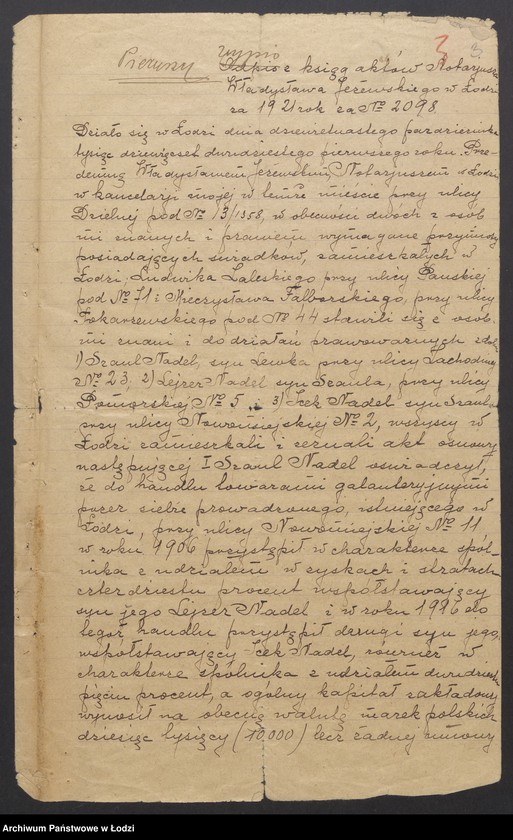 3
Pierwszy wypis
Odpis z księg aktów Notarjusza
Władysława Jeżewskiego w Łodzi
za 1921 rok za № 2098.
Działo się w Łodzi dnia dziewiętnastego października
tysiąc dziewięćset dwudziestego pierwszego roku. Prze-
demną Władysławem Jeżewskim, Notarjuszem w Łodzi
w kancelarji mojej w temże mieście przy ulicy
Dzielnej pod № 13/1358, w obecności dwóch z osób
mi znanych i prawem wymagane przymioty
posiadających świadków, zamieszkałych w
Łodzi: Ludwika Zaleskiego przy ulicy Pańskiej
pod № 71 i Mieczysława Falborskiego, przy ulicy
Tokarzewskiego pod № 44 stawili się z osób
mi znani i do działań prawowarnych zdolni
1) Szaul Nadel, syn Lewka przy ulicy Zachodniej
№ 23, 2) Lejzer Nadel syn Szaula, przy ulicy
Pomorskiej № 5 i 3) Icek Nadel syn Szaula
przy ulicy Nowomiejskiej № 2, wszyscy w
Łodzi zamieszkali i zeznali akt osnowy
następującej I Szaul Nadel oświadczył,
że do handlu towarami galanteryjnymi
przez siebie prowadzonego, istniejącego w
Łodzi, przy ulicy Nowomiejskiej № 11
w roku 1906 przystąpił w charakterze spól-
nika z udziałem w zyskach i stratach
czterdziestu procent współstawający
syn jego Lejzer Nadel i w roku 1916 do
tegoż handlu przystąpił drugi syn jego,
współstawający Icek Nadel, również w
charakterze spólnika z udziałem dwudziestu
pięciu procent, a ogólny kapitał zakładowy
wynosił na obecną walutę marek polskich
dziesięć tysięcy (10,000) lecz żadnej umowy
Archiwum Państwowe w Łodzi